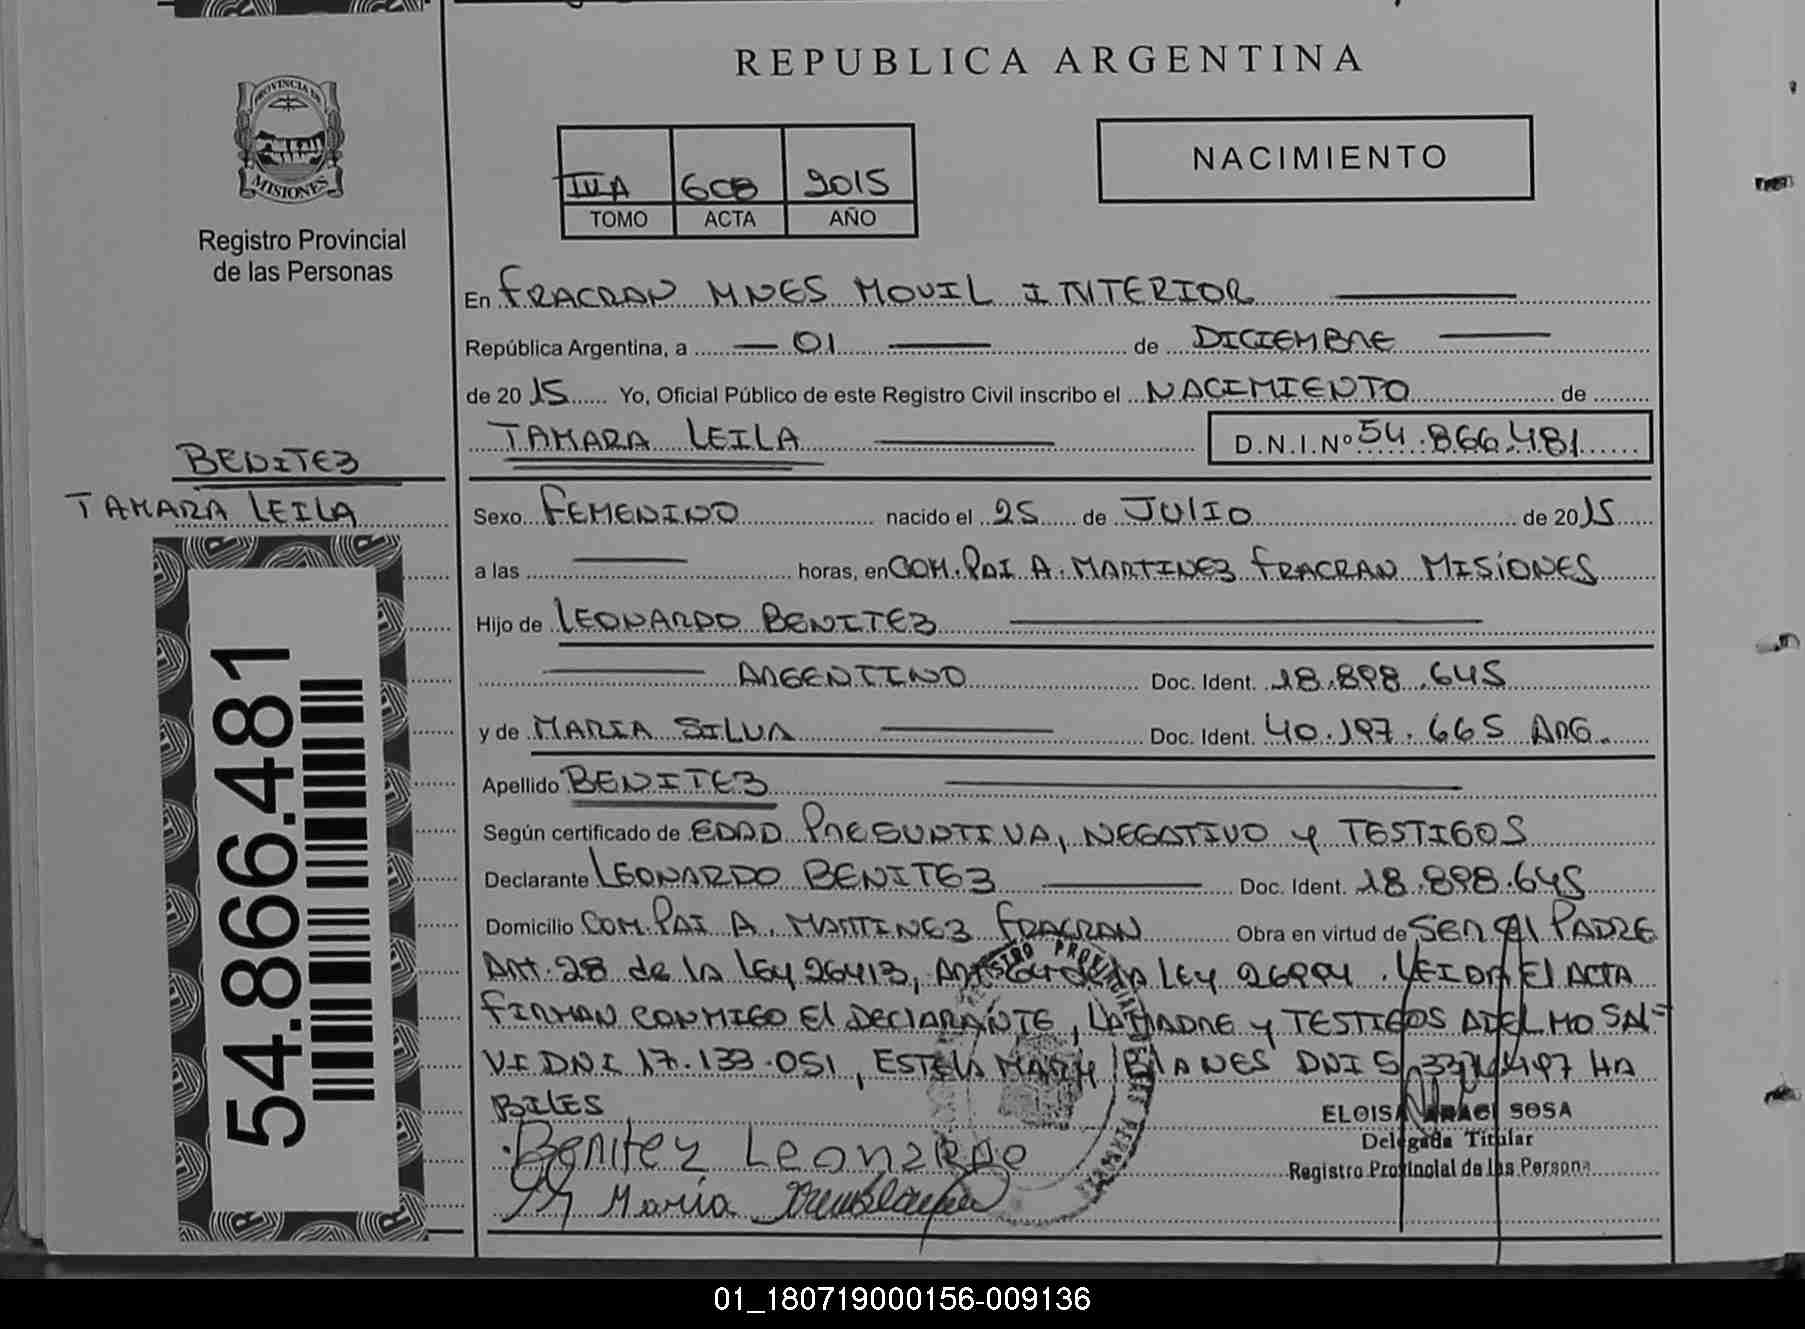 REPUBLICA ARGENTINA
PROVINCIA DE
MISIONES
Registro Provincial
de las Personas
NACIMIENTO
2015
TOMO ACTA AÑO
En FRACRAN MNES MOVIL INTERIOR
República Argentina, a 01 de DICIEMBRE
de 2015 Yo, Oficial Público de este Registro Civil inscribo el NACIMIENTO de
TAMARA LEILA D.N.I.Nº 54.866.481
BENITEZ
TAMARA LEILA
54.866.481
Sexo FEMENINO nacido el 25 de JULIO de 2015
a las horas, en COM. PAI A. MARTINEZ FRACRAN MISIONES
Hijo de LEONARDO BENITEZ
ARGENTINO Doc. Ident. 18.898.645
y de MARIA SILVA Doc. Ident. 40.197.665 ARG.
Apellido BENITEZ
Según certificado de EDAD PRESUNTIVA, NEGATIVO y TESTIGOS
Declarante LEONARDO BENITEZ Doc. Ident. 18.898.645
Domicilio COM. PAI A. MARTINEZ FRACRAN Obra en virtud de SER El PADRE
ART. 28 de la LEY 26413, LEY 26994. LEIDA El ACTA
FIRMAN CONMIGO El DECLARANTE, LA MADRE y TESTIGOS ADELMO SAL=
VI DNI 17.133.051, ESTELA DNI HA
BILES
Benitez Leonardo
ELOISA ARACI SOSA
Delegada Titular
Registro Provincial de las Persona
María
01_180719000156-009136